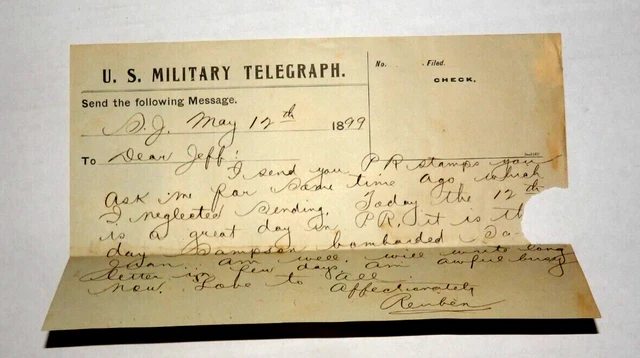 U. S. MILITARY TELEGRAPH.
No. . Filed.
CHECK.
Send the following Message.
S.J. May 12th 1899
To Dear Jeff:
I send you P R stamps you
ask me for some time ago which
I neglected sending. Today the 12th
is a great day in P.R. it is th
day Sampson bombarded Sa
Juan. am well. will write long
letter in few days, am awful busy
now. Love to all.
Affectionately
Reuben